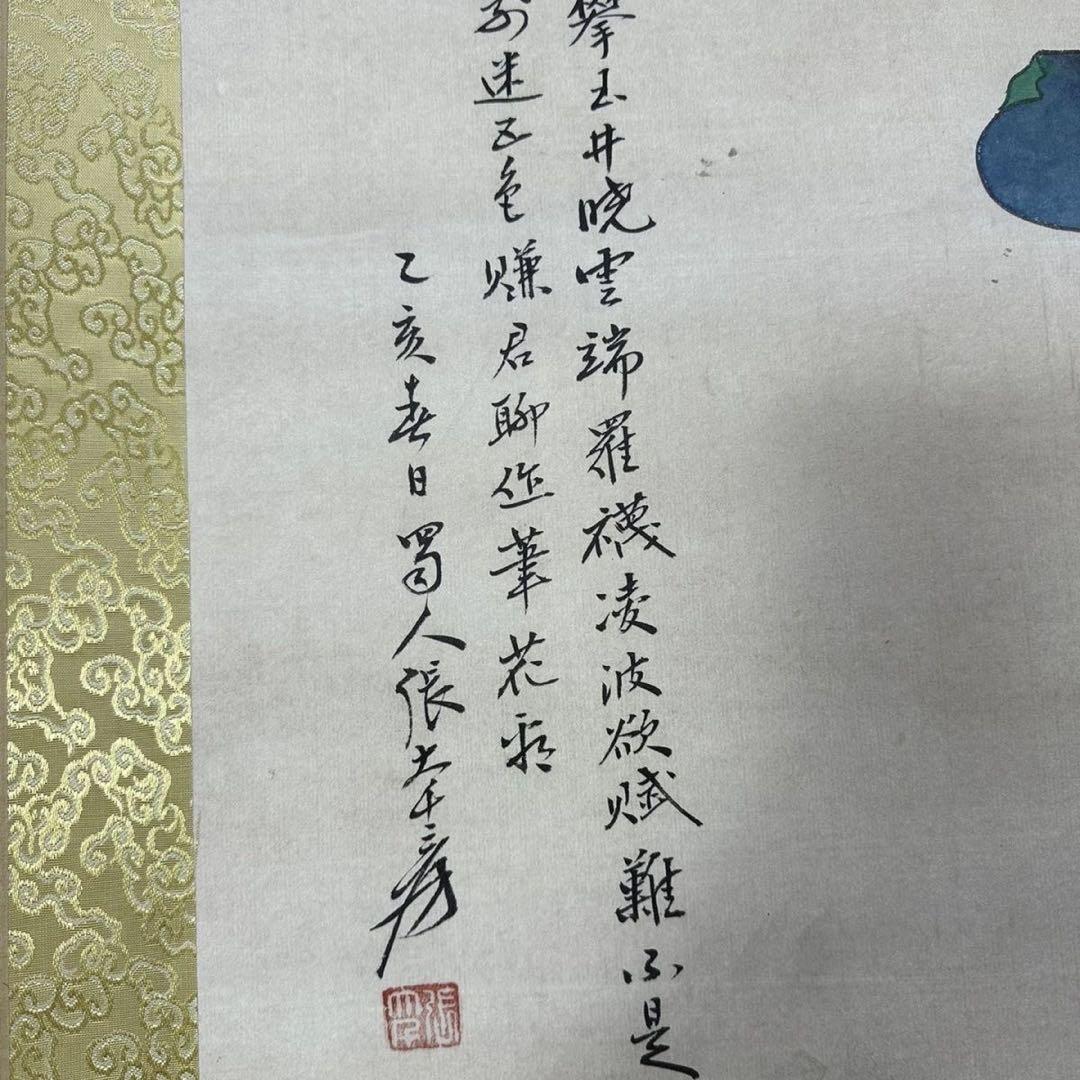 攀玉井晓雲端羅襪凌波欲賦難不是
迷五色賺君聊作葦花看
乙亥春日蜀人張大千爰
張爰